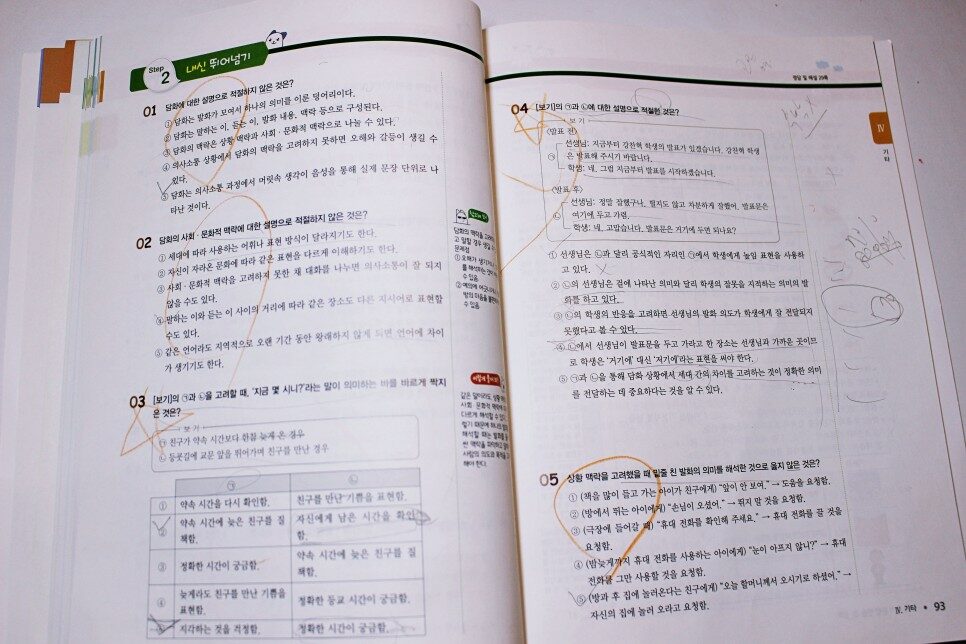 Step 2 내신 뛰어넘기
01 담화에 대한 설명으로 적절하지 않은 것은?
① 담화는 발화가 모여서 하나의 의미를 이룬 덩어리이다.
② 담화는 말하는 이, 듣는 이, 발화 내용, 맥락 등으로 구성된다.
③ 담화의 맥락은 상황 맥락과 사회·문화적 맥락으로 나눌 수 있다.
④ 의사소통 상황에서 담화의 맥락을 고려하지 못하면 오해와 갈등이 생길 수
있다.
⑤ 담화는 의사소통 과정에서 머릿속 생각이 음성을 통해 실제 문장 단위로 나
타난 것이다.
02 담화의 사회·문화적 맥락에 대한 설명으로 적절하지 않은 것은?
① 세대에 따라 사용하는 어휘나 표현 방식이 달라지기도 한다.
② 자신이 자라온 문화에 따라 같은 표현을 다르게 이해하기도 한다.
③ 사회·문화적 맥락을 고려하지 못한 채 대화를 나누면 의사소통이 잘 되지
않을 수도 있다.
④ 말하는 이와 듣는 이 사이의 거리에 따라 같은 장소도 다른 지시어로 표현할
수도 있다.
⑤ 같은 언어라도 지역적으로 오랜 기간 동안 왕래하지 않게 되면 언어에 차이
가 생기기도 한다.
03 [보기]의 ㉠과 ㉡을 고려할 때, '지금 몇 시니?'라는 말이 의미하는 바를 바르게 짝지
은 것은?
보기
㉠ 친구가 약속 시간보다 한참 늦게 온 경우
㉡ 등굣길에 교문 앞을 뛰어가며 친구를 만난 경우
㉠ ㉡
① 약속 시간을 다시 확인함. 친구를 만난 기쁨을 표현함.
② 약속 시간에 늦은 친구를 질책함. 자신에게 남은 시간을 확인함.
③ 정확한 시간이 궁금함. 약속 시간에 늦은 친구를 질책함.
④ 늦게라도 친구를 만난 기쁨을 표현함. 정확한 등교 시간이 궁금함.
⑤ 지각하는 것을 걱정함. 정확한 시간이 궁금함.
담화의 맥락을 고려하
문제점
수 있음.
같은 말이라도, 상황
사회·문화적 맥락에
다르게 해석할 수 있
해야 한다.
정답 및 해설 29쪽
04 [보기]의 ㉠과 ㉡에 대한 설명으로 적절한 것은?
보기
<발표 전>
㉠
선생님: 지금부터 강찬혁 학생의 발표가 있겠습니다. 강찬혁 학생
은 발표해 주시기 바랍니다.
학생: 네. 그럼 지금부터 발표를 시작하겠습니다.
<발표 후>
㉡
선생님: 정말 잘했구나. 떨지도 않고 차분하게 잘했어. 발표문은
여기에 두고 가렴.
학생: 네, 고맙습니다. 발표문은 거기에 두면 되나요?
① 선생님은 ㉡과 달리 공식적인 자리인 ㉠에서 학생에게 높임 표현을 사용하
고 있다.
② ㉡의 선생님은 겉에 나타난 의미와 달리 학생의 잘못을 지적하는 의미의 발
화를 하고 있다.
③ ㉡의 학생의 반응을 고려하면 선생님의 발화 의도가 학생에게 잘 전달되지
못했다고 볼 수 있다.
④ ㉡에서 선생님이 발표문을 두고 가라고 한 장소는 선생님과 가까운 곳이므
로 학생은 '거기에' 대신 '저기에'라는 표현을 써야 한다.
⑤ ㉠과 ㉡을 통해 담화 상황에서 세대 간의 차이를 고려하는 것이 정확한 의미
를 전달하는 데 중요하다는 것을 알 수 있다.
05 상황 맥락을 고려했을 때 밑줄 친 발화의 의미를 해석한 것으로 옳지 않은 것은?
① (책을 많이 들고 가는 아이가 친구에게) "앞이 안 보여." → 도움을 요청함.
② (방에서 뛰는 아이에게) "손님이 오셨어." → 뛰지 말 것을 요청함.
③ (극장에 들어갈 때) "휴대 전화를 확인해 주세요." → 휴대 전화를 끌 것을
요청함.
④ (밤늦게까지 휴대 전화를 사용하는 아이에게) "눈이 아프지 않니?" → 휴대
전화를 그만 사용할 것을 요청함.
⑤ (방과 후 집에 놀러온다는 친구에게) "오늘 할머니께서 오시기로 하셨어." →
자신의 집에 놀러 오라고 요청함.
Ⅳ
기타
Ⅳ. 기타 • 93